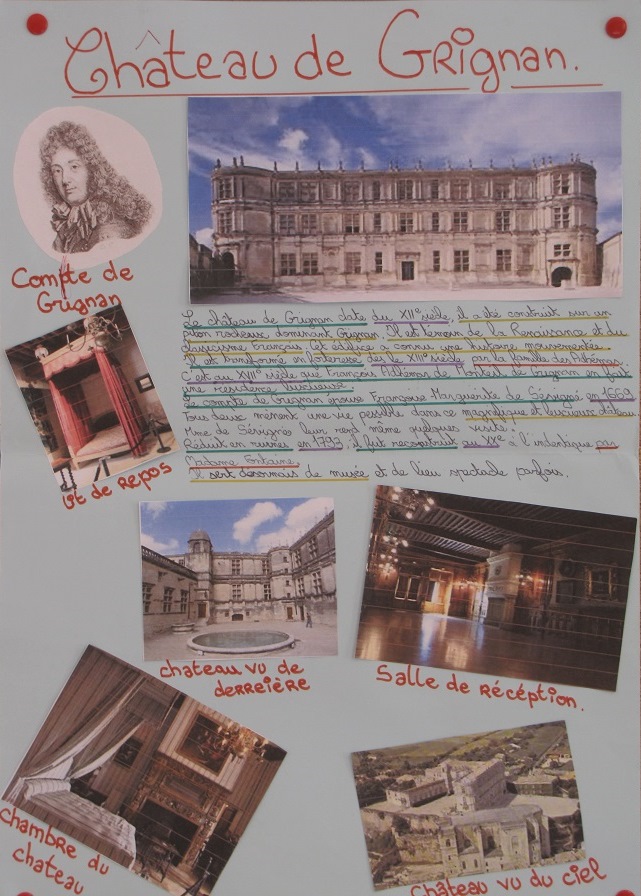 Château de Grignan.
Compte de
Grignan
Le château de Grignan date du XIIe siècle, il a été construit sur un
piton rocheux, dominant Grignan. Il est témoin de la Renaissance et du
classicisme français. Cet édifice a connu une histoire mouvementée.
Il est transformé en forteresse dès le XIIIe siècle par la famille des Adhémar.
C'est au XVIIe siècle que François Adhémar de Monteil de Grignan en fait
une résidence luxueuse.
Le compte de Grignan épouse Françoise Marguerite de Sévigné en 1669
Tous deux mènent une vie paisible dans ce magnifique et luxueux château
Mme de Sévigné leur rend même quelques visites.
Réduit en ruines en 1793, il fut reconstruit au XXe à l'identique par
Madame Fontaine.
Il sert désormais de musée et de lieu spectacle parfois.
lit de repos
chateau vu de
derreière
Salle de récéption.
chambre du
chateau
Château vu du ciel